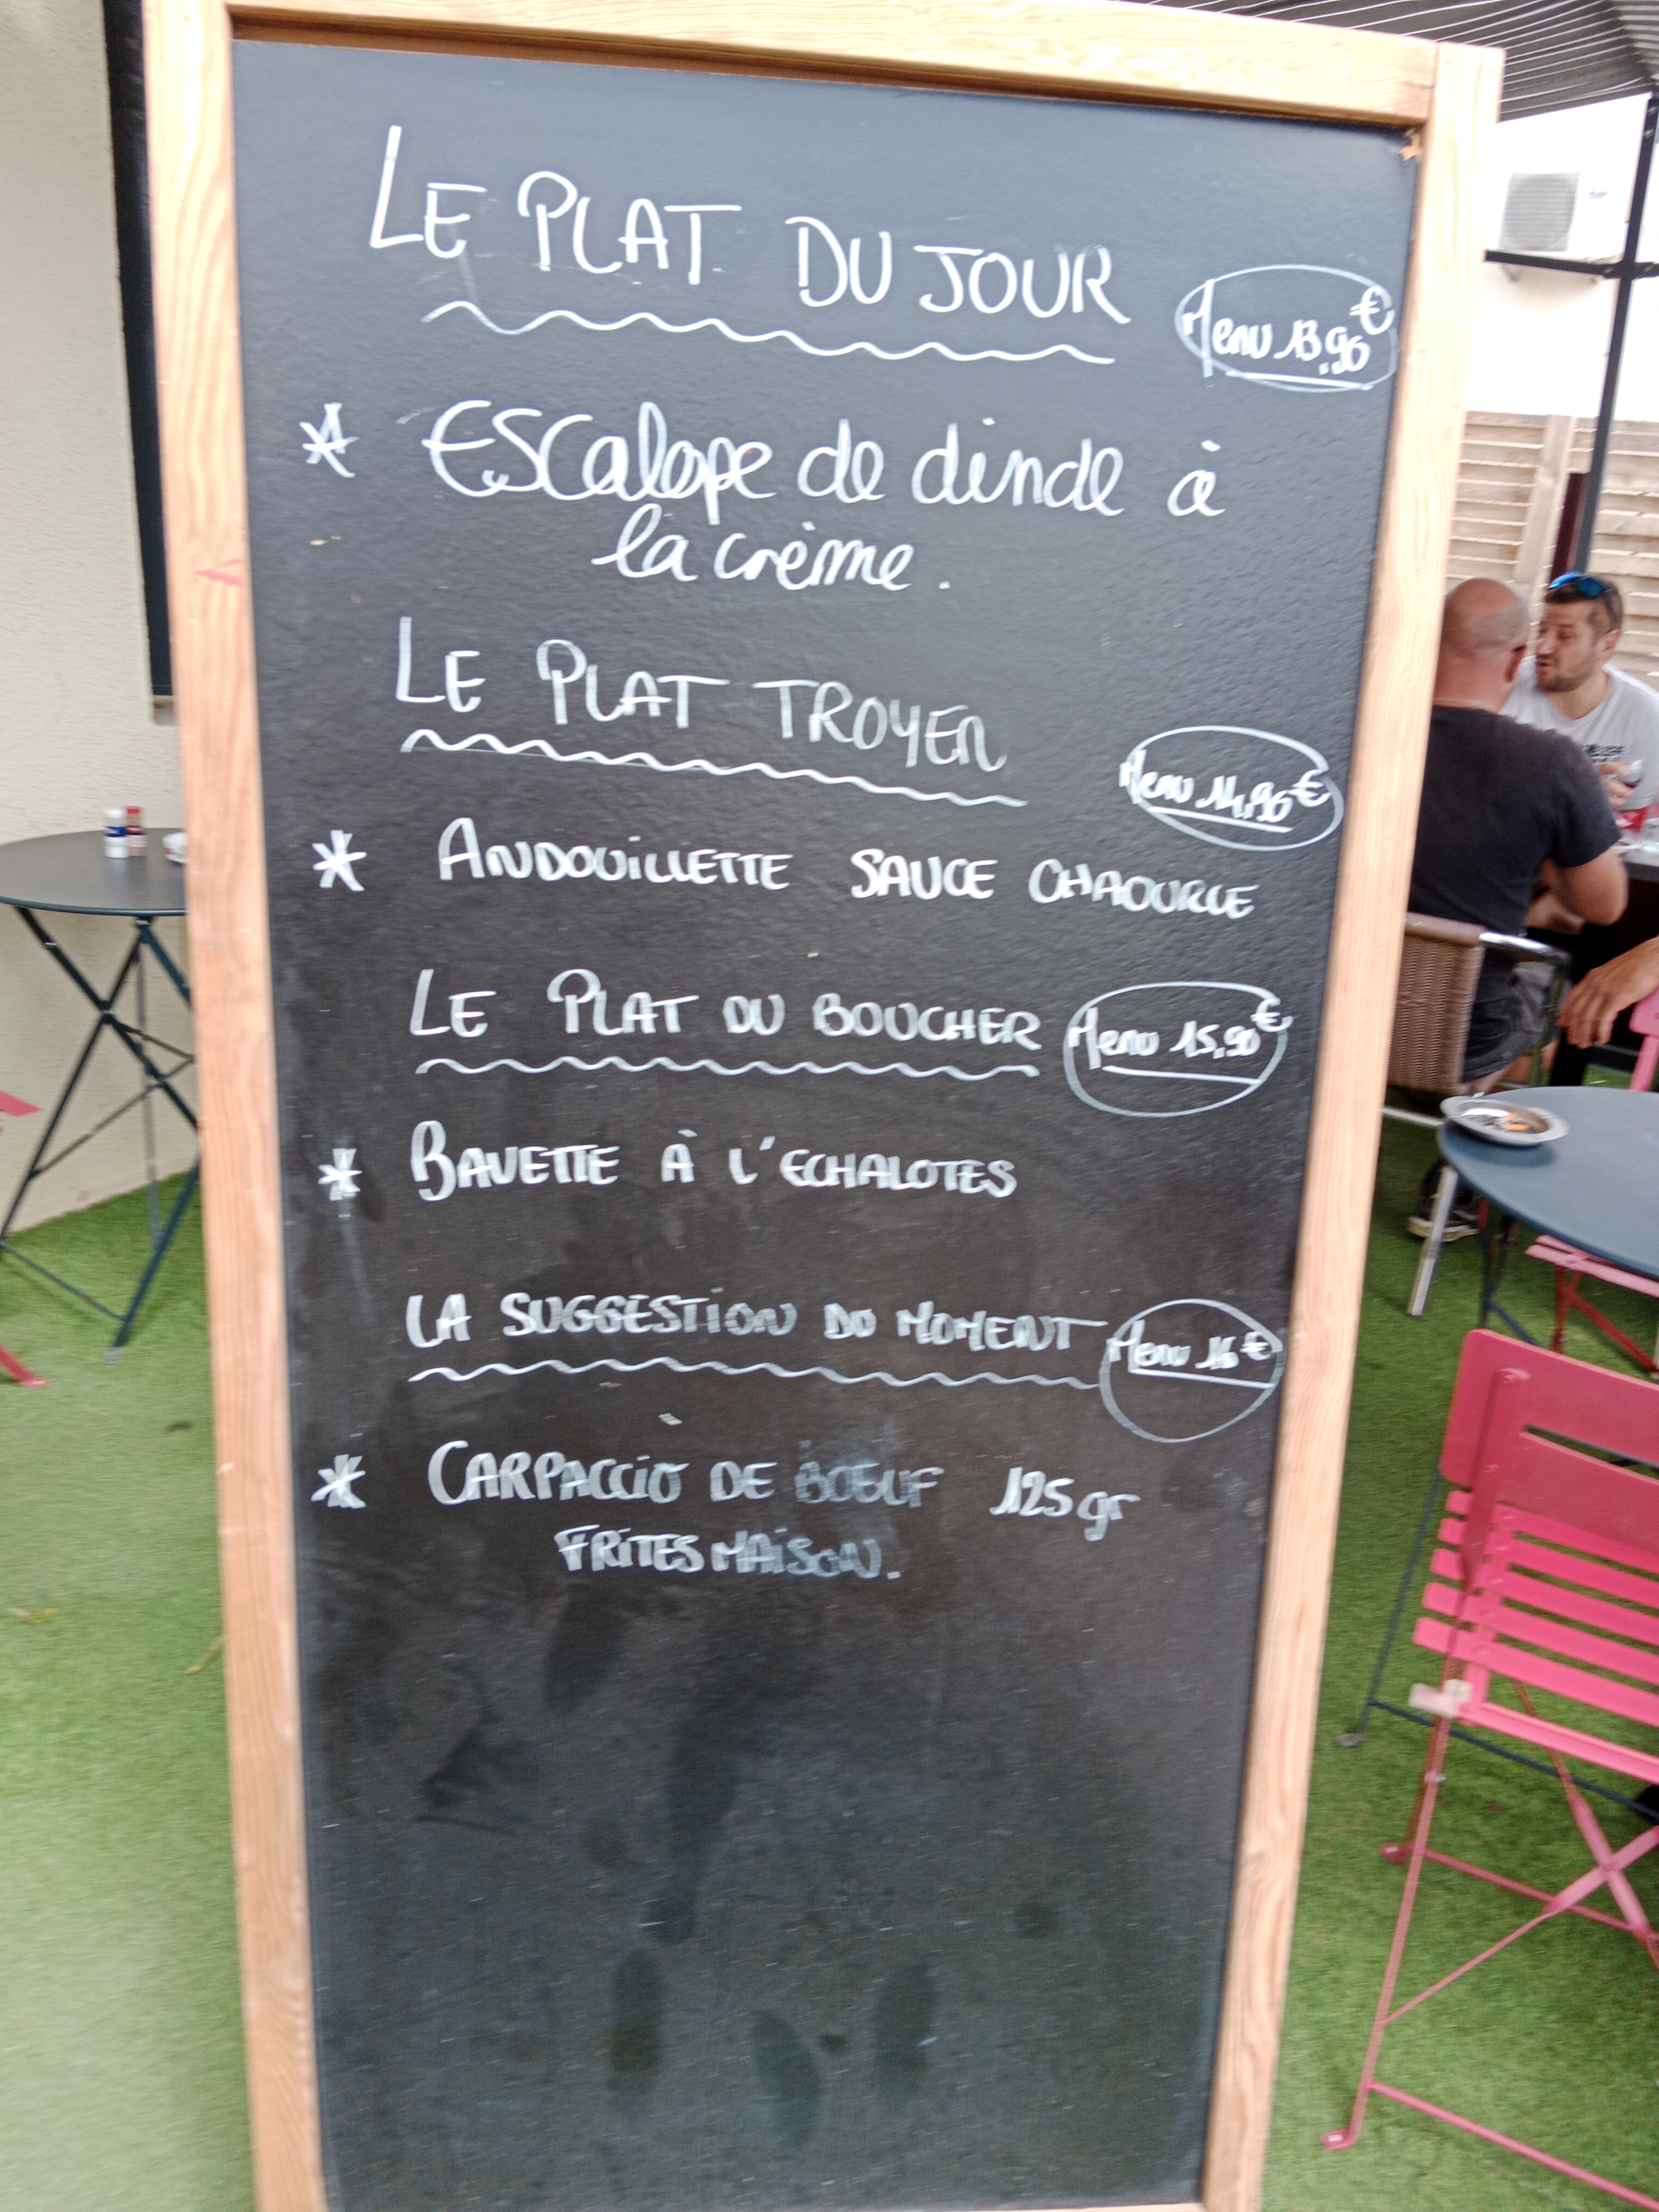 LE PLAT DU JOUR
Menu 13,90€
* Escalope de dinde à
la crème.
LE PLAT TROYEN
Menu 14,90€
* ANDOUILLETTE SAUCE CHAOURCE
LE PLAT DU BOUCHER Menu 15,90€
* BAVETTE À L'ECHALOTES
LA SUGGESTION DU MOMENT Menu 16€
* CARPACCIO DE BOEUF 125gr
FRITES MAISON.